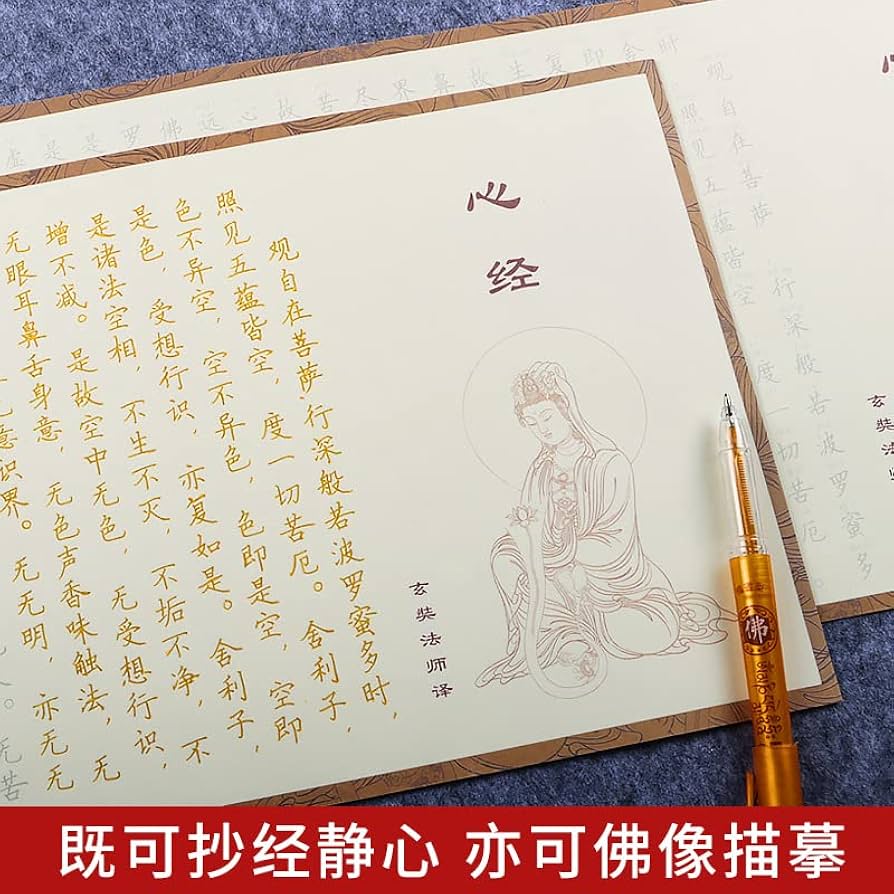 心经
观自在菩萨,行深般若波罗蜜多时,
照见五蕴皆空,度一切苦厄。舍利子,
色不异空,空不异色,色即是空,空即
是色,受想行识,亦复如是。舍利子,
是诸法空相,不生不灭,不垢不净,不
增不减。是故空中无色,无受想行识,
无眼耳鼻舌身意,无色声香味触法,无
意识界。无无明,亦无无
无苦
玄奘法师译
观自在菩萨 行深般若波罗蜜多
照见五蕴皆空 度一切苦厄。
虚是是罗佛远心故苦尽界鼻故生复即舍时
玄奘法师
佛
既可抄经静心 亦可佛像描摹